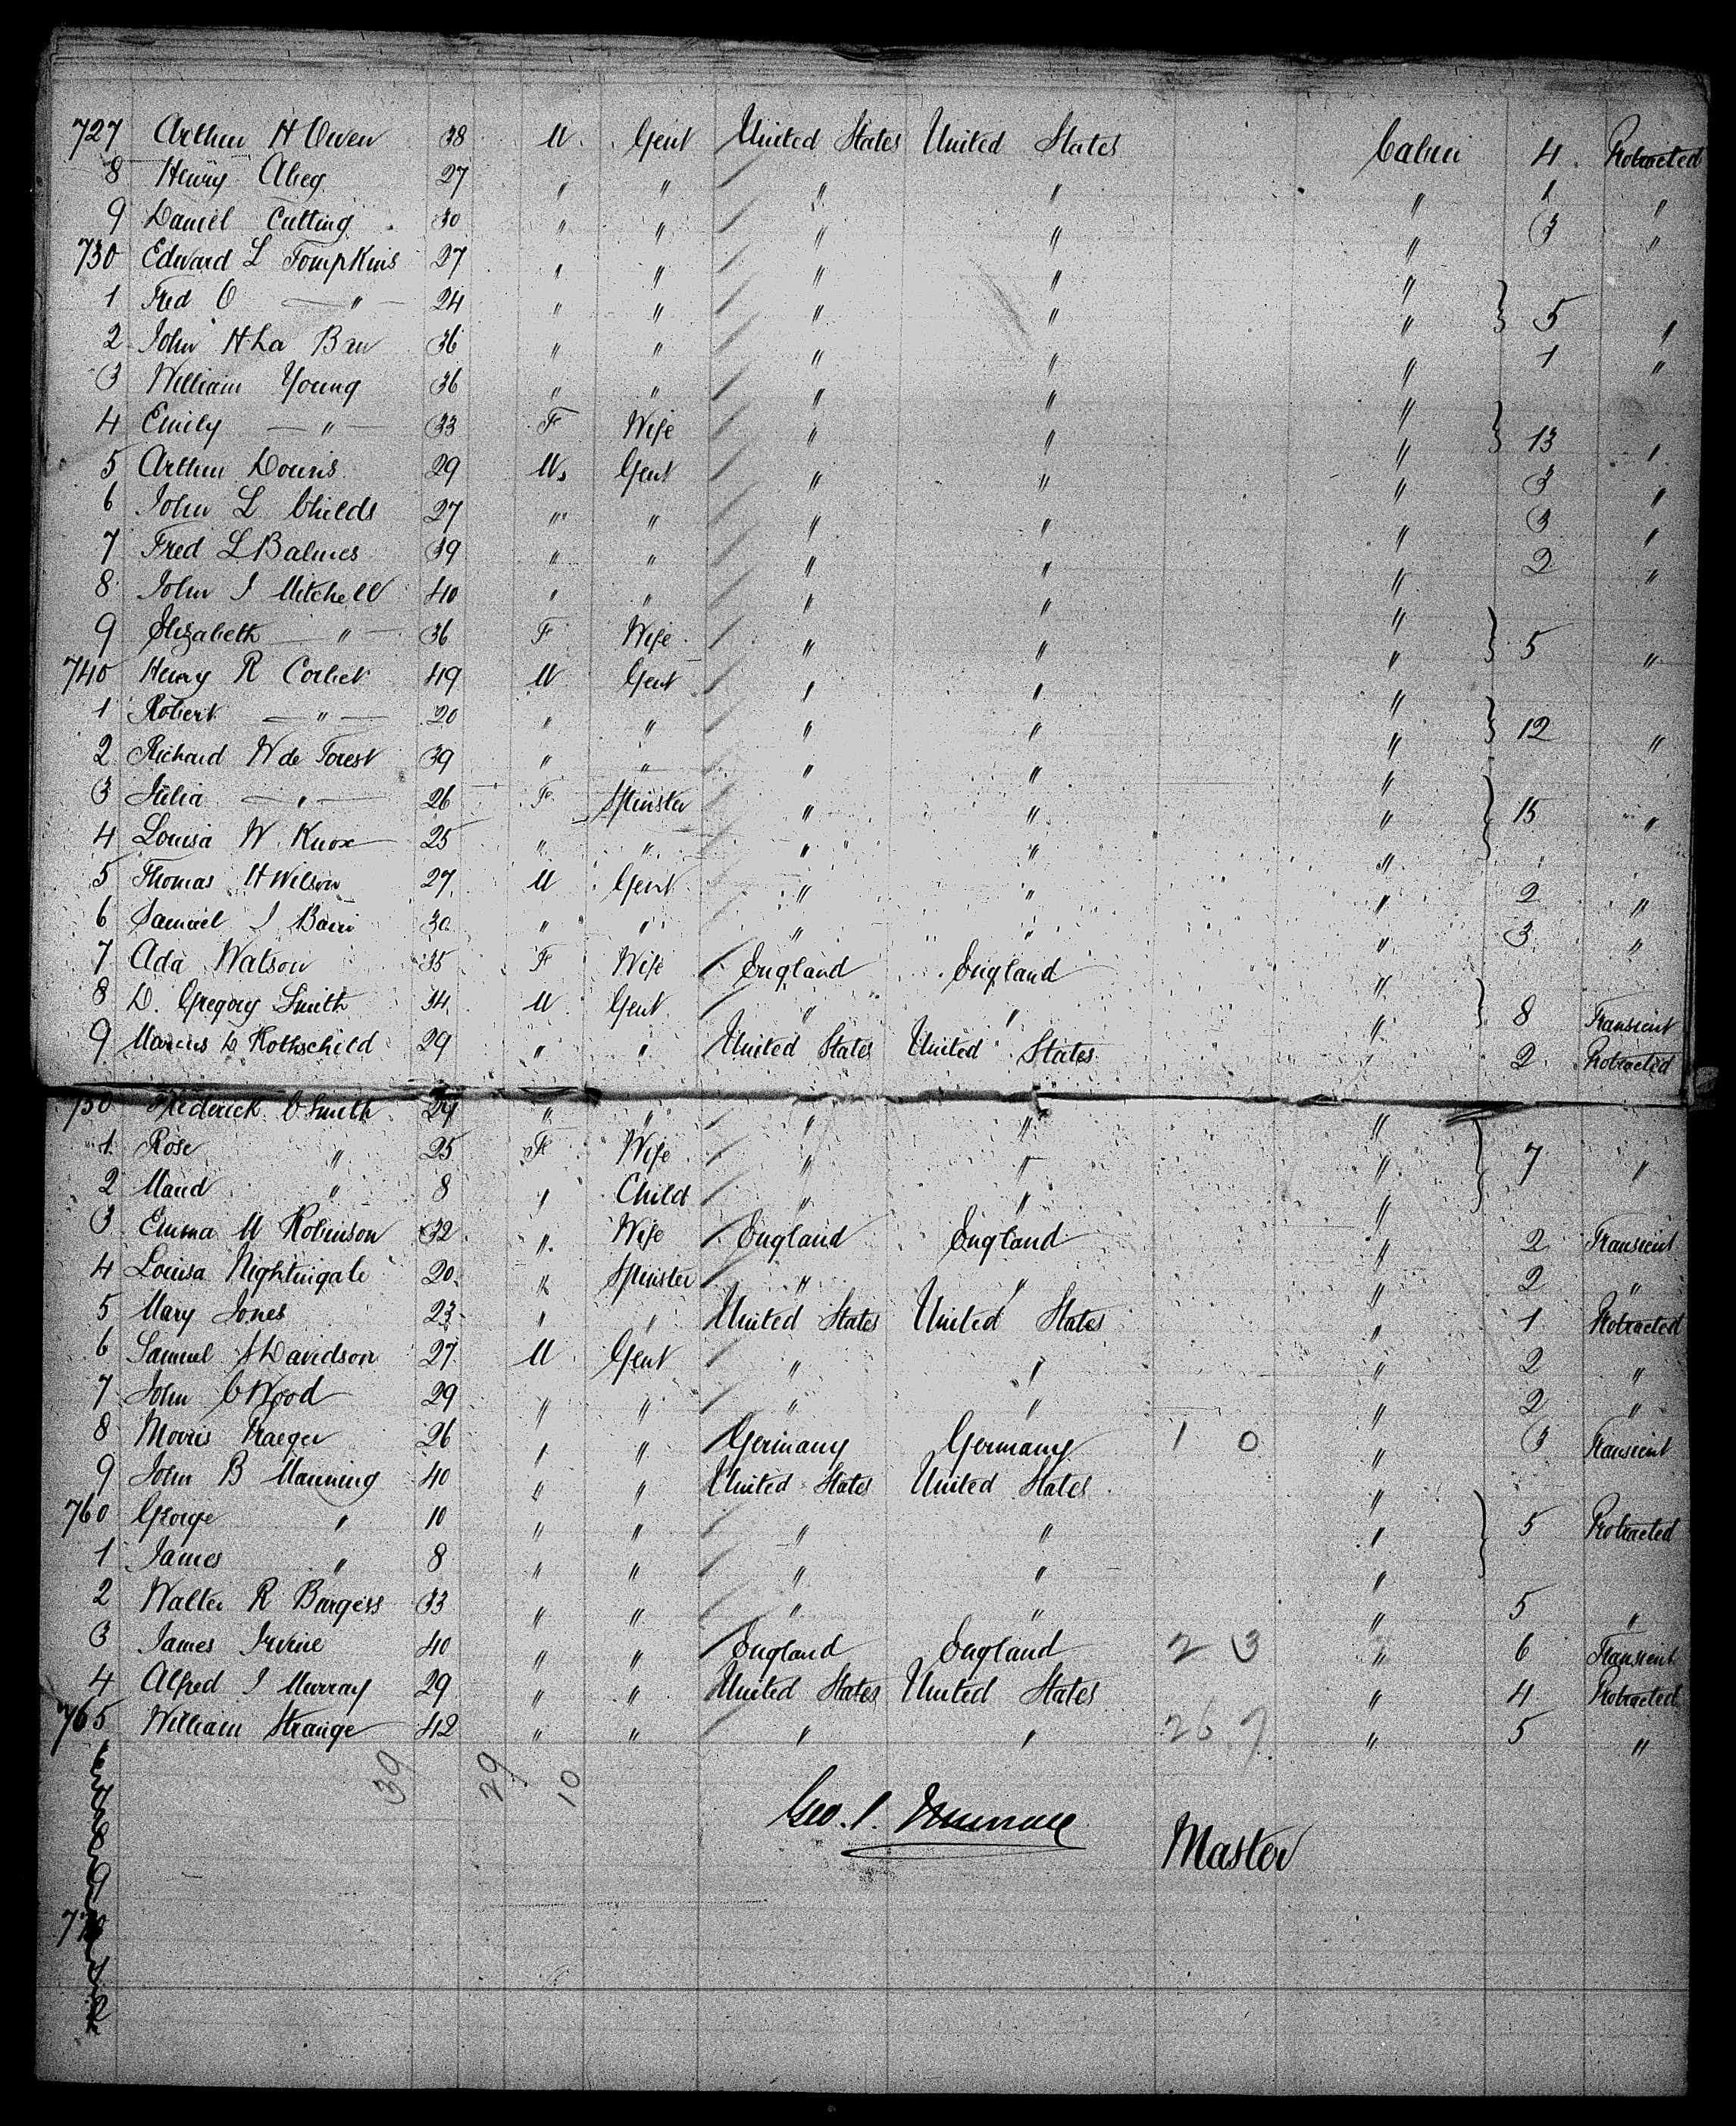 727 Arthur H Owen 38 M Gent United States United States Cabin 4 Protracted
8 Henry Abeg 27 " " " " " 1 "
9 Daniel Cutting 30 " " " " " 3 "
730 Edward L Tompkins 27 " " " " "
1 Fred O — " — 24 " " " " " } 5 "
2 John H La Bau 36 " " " " " 1 "
3 William Young 36 " " " " "
4 Emily — " — 33 F Wife " " " } 13 "
5 Arthur Downs 29 M Gent " " " 3 "
6 John L Childs 27 " " " " " 3 "
7 Fred L Balmes 39 " " " " " 2 "
8 John J Mitchell 40 " " " " "
9 Elizabeth — " — 36 F Wife " " " } 5 "
740 Henry R Corbet 49 M Gent " " "
1 Robert — " — 20 " " " " " } 12 "
2 Richard W de Forest 39 " " " " "
3 Julia — " — 26 F Spinster " " " } 15 "
4 Louisa W Knox 25 " " " " "
5 Thomas H Wilson 27 M Gent " " " 2 "
6 Samuel J 30 " " " " " 3 "
7 Ada Watson 35 F Wife England England "
8 D. Gregory Smith 34 M Gent " " " } 8 Transient
9 Marcus L Rothschild 29 " " United States United States " 2 Protracted
750 Frederick C Smith 29 " " " " "
1 Rose " 25 F Wife " " " } 7 "
2 Maud " 8 " Child " " "
3 Emma M Robinson 32 " Wife England England " 2 Transient
4 Louisa Nightingale 20 " Spinster " " " 2 "
5 Mary Jones 23 " " United States United States " 1 Protracted
6 Samuel S Davidson 27 M Gent " " " 2 "
7 John C Wood 29 " " " " " 2 "
8 Morris Praeger 26 " " Germany Germany 1 0 " 3 Transient
9 John B Manning 40 " " United States United States "
760 George " 10 " " " " " } 5 Protracted
1 James " 8 " " " " "
2 Walter R Burgess 33 " " " " " 5 "
3 James Irvine 40 " " England England 2 3 " 6 Transient
4 Alfred J Murray 29 " " United States United States " 4 Protracted
765 William Strange 42 " " " " 26 7 " 5 "
39 29 10
Geo. Master
770